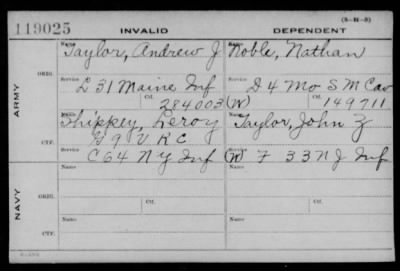 (3-M-3)
119025 INVALID DEPENDENT
ARMY
NAVY
ORIG.
Name Taylor, Andrew J Noble, Nathan
Service D 31 Maine Inf Service D 4 Mo S M Cav
Ctf. 284003 (W) Ctf. 149711
CTF.
Name Shippey, Leroy Name Taylor, John Z
G 9 V R C
Service C 64 N Y Inf (W) Service F 33 N J Inf
ORIG.
Name Name
Service Service
Ctf. Ctf.
CTF.
Name Name
Service Service